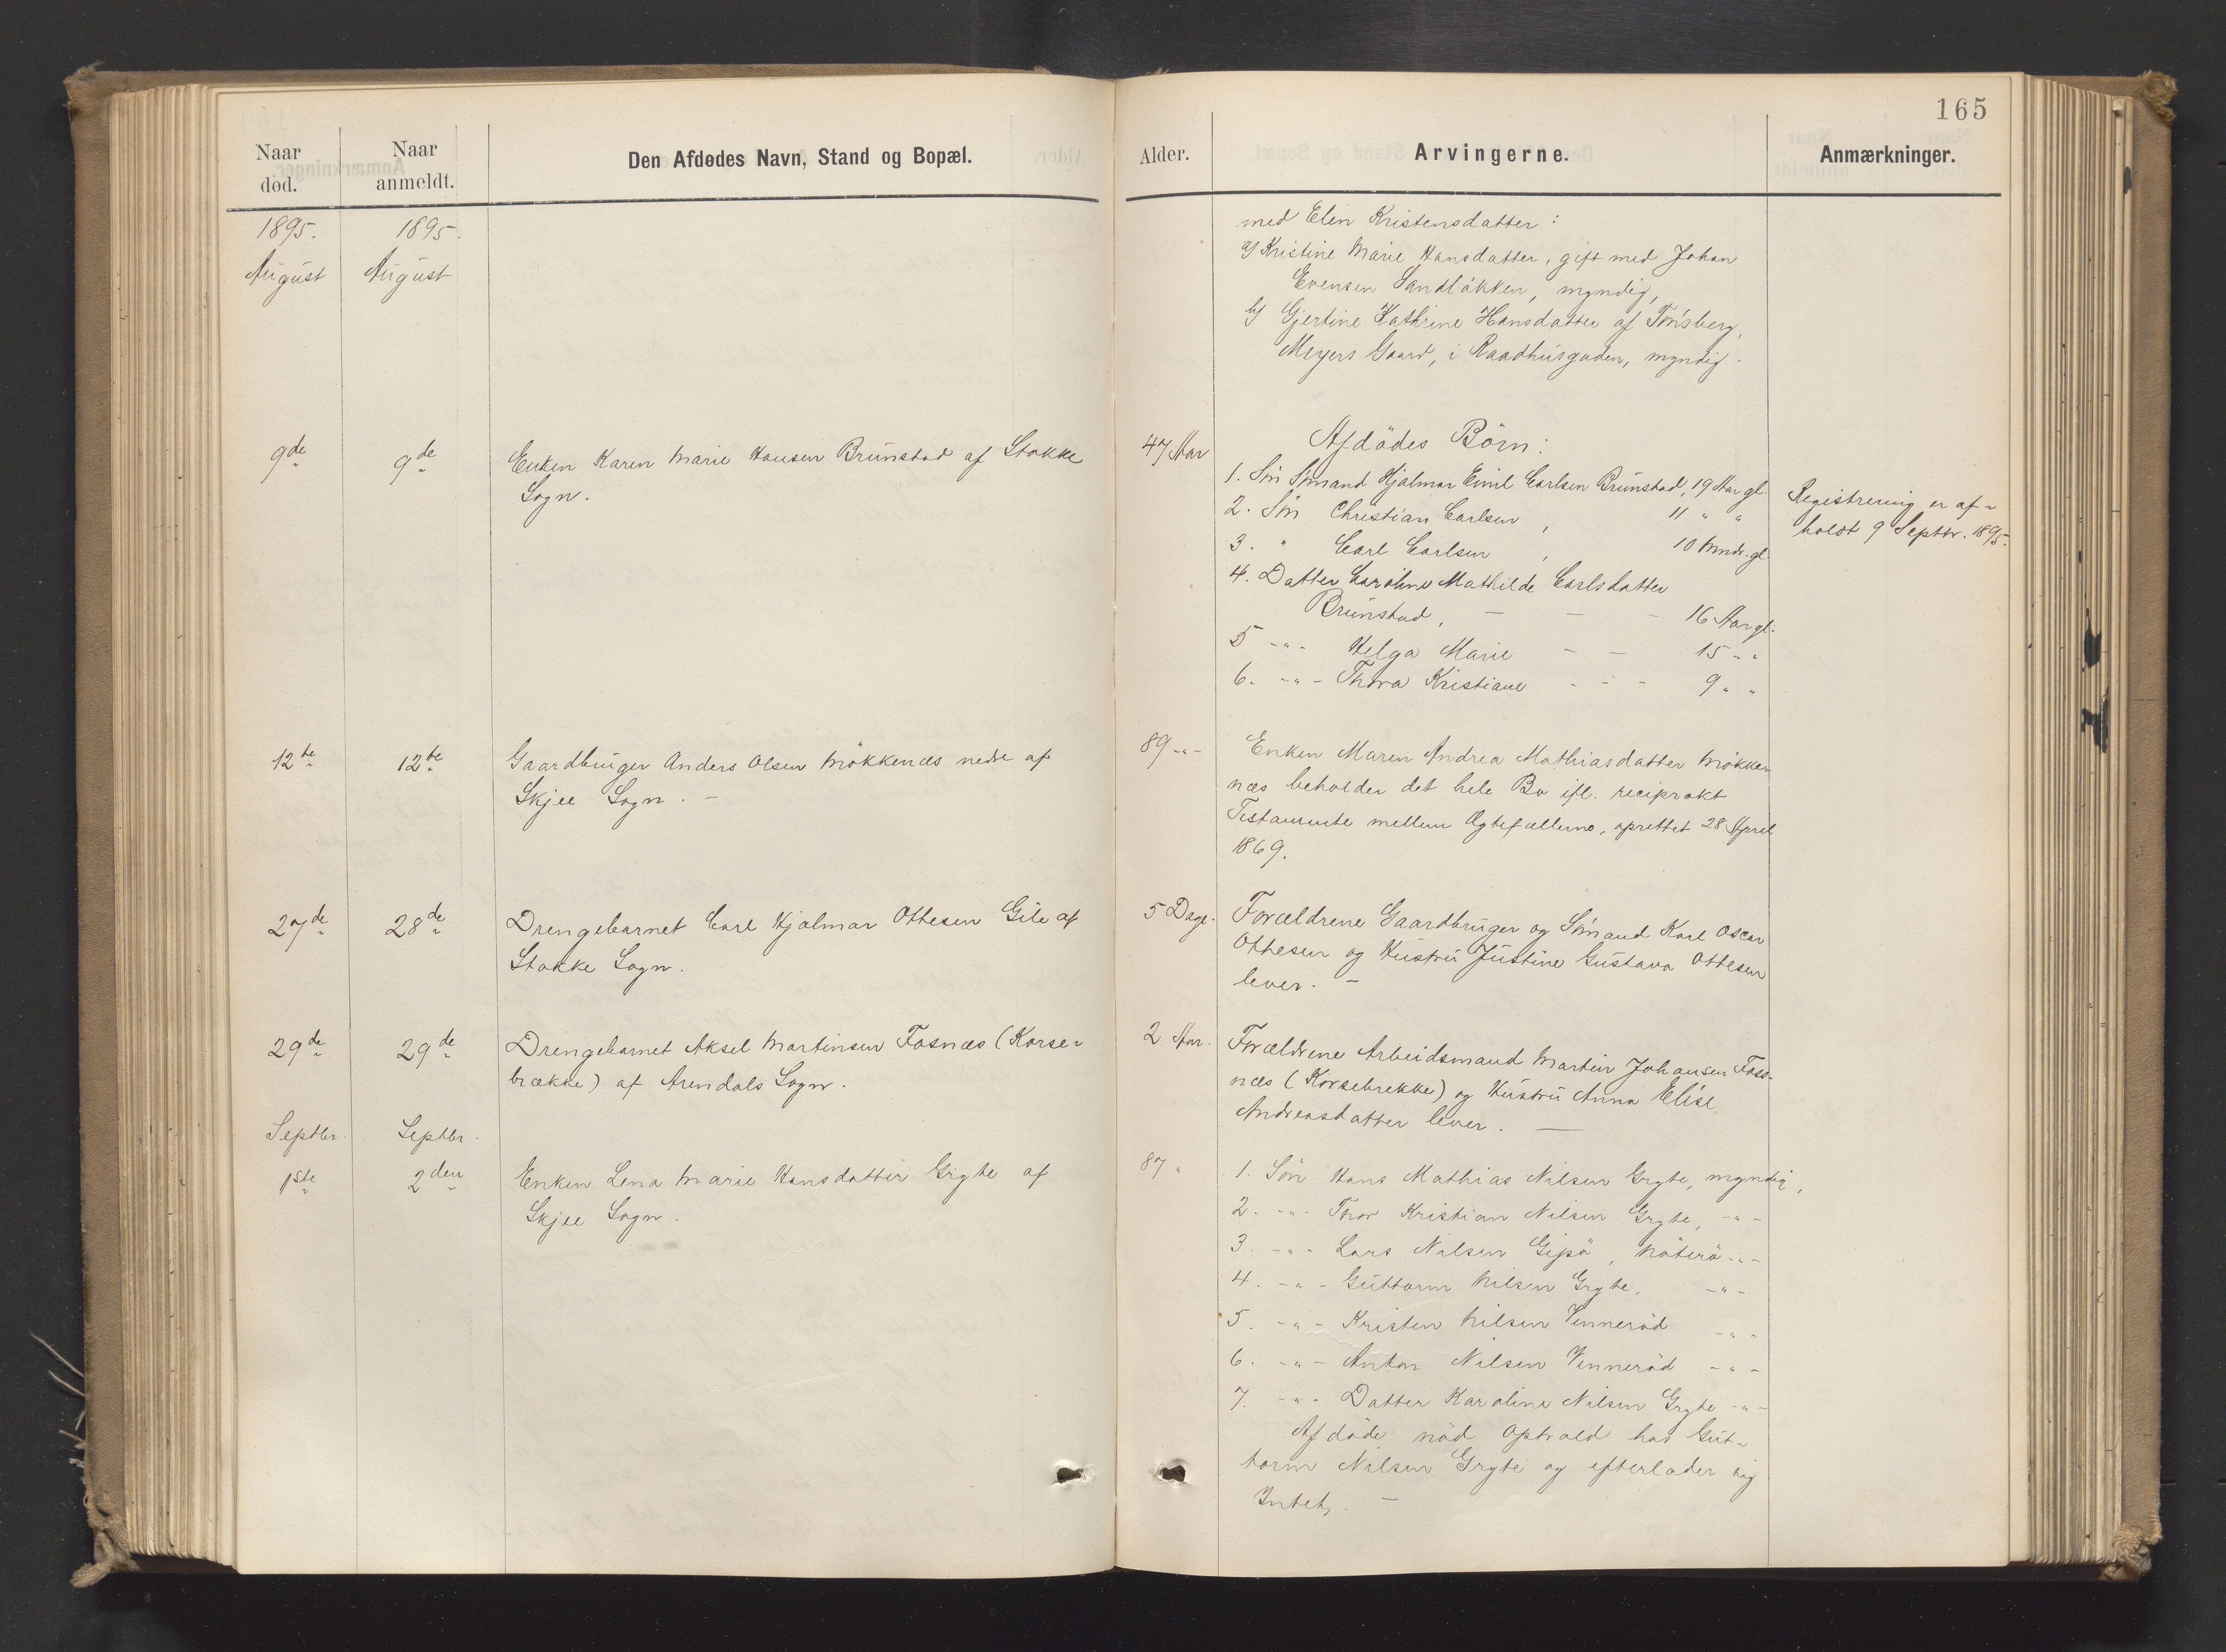 165
Naar død.
Naar anmeldt.
Den Afdødes Navn, Stand og Bopæl.
Alder.
Arvingerne.
Anmærkninger.
1895.
1895.
August
August
med Elen Kristensdatter:
a) Kristine Marie Hansdatter, gift med Johan
Evensen Sandløkken, myndig,
b) Gjertine Kathrine Hansdatter af Tønsberg,
Meyers Gaard, i Raadhusgaden, myndig.
9de
9de
Enken Karen Marie Hansen Brunstad af Stokke
Sogn.
47 Aar
Afdødes Børn:
1. Søn Sømand Hjalmar Emil Carlsen Brunstad, 19 Aar gl.
2. Søn Christian Carlsen, 11 " "
3. " Carl Carlsen, 10 Mndr. gl.
4. Datter Caroline Mathilde Carlsdatter
Brunstad, - - - 16 Aar gl.
5 -"- Helga Marie - - 15 - "
6. -"- Thora Kristiane - - - 9 " "
Registrering er af-
holdt 9 Septbr. 1895.
12te
12te
Gaardbruger Anders Olsen Møkkenæs nedre af
Skjee Sogn. -
89 -"-
Enken Maren Andrea Mathiasdatter Møkke-
næs beholder det hele Bo ifl. reciprokt
Testamente mellem Ægtefællerne, oprettet 28 April
1869.
27de
28de
Drengebarnet Carl Hjalmar Ottesen Gile af
Stokke Sogn.
5 Dage.
Forældrene Gaardbruger og Sømand Karl Oscar
Ottesen og Hustru Justine Gustava Ottesen
lever. -
29de
29de
Drengebarnet Aksel Martinsen Fosnæs (Korse-
brække) af Arendals Sogn.
2 Aar.
Forældrene Arbeidsmand Martin Johansen Foss-
næs (Korsebrekke) og Hustru Anna Elise
Andreasdatter lever. -
Septbr.
Septbr.
1ste
2den
Enken Lena Marie Hansdatter Gryte af
Skjee Sogn.
87 "
1. Søn Hans Mathias Nilsen Gryte, myndig,
2. -"- Thor Kristian Nilsen Gryte, -"-
3. -"- Lars Nilsen Gipø, Nøterø -"-
4. -"- Guttorm Nilsen Gryte, -"-
5. -"- Kristen Nilsen Vennerød -"-
6. -"- Anton Nilsen Vennerød -"-
7. -"- Datter Karoline Nilsen Gryte -"-
Afdøde nød Ophold hos Gut-
torm Nilsen Gryte og efterlader sig
Intet. -